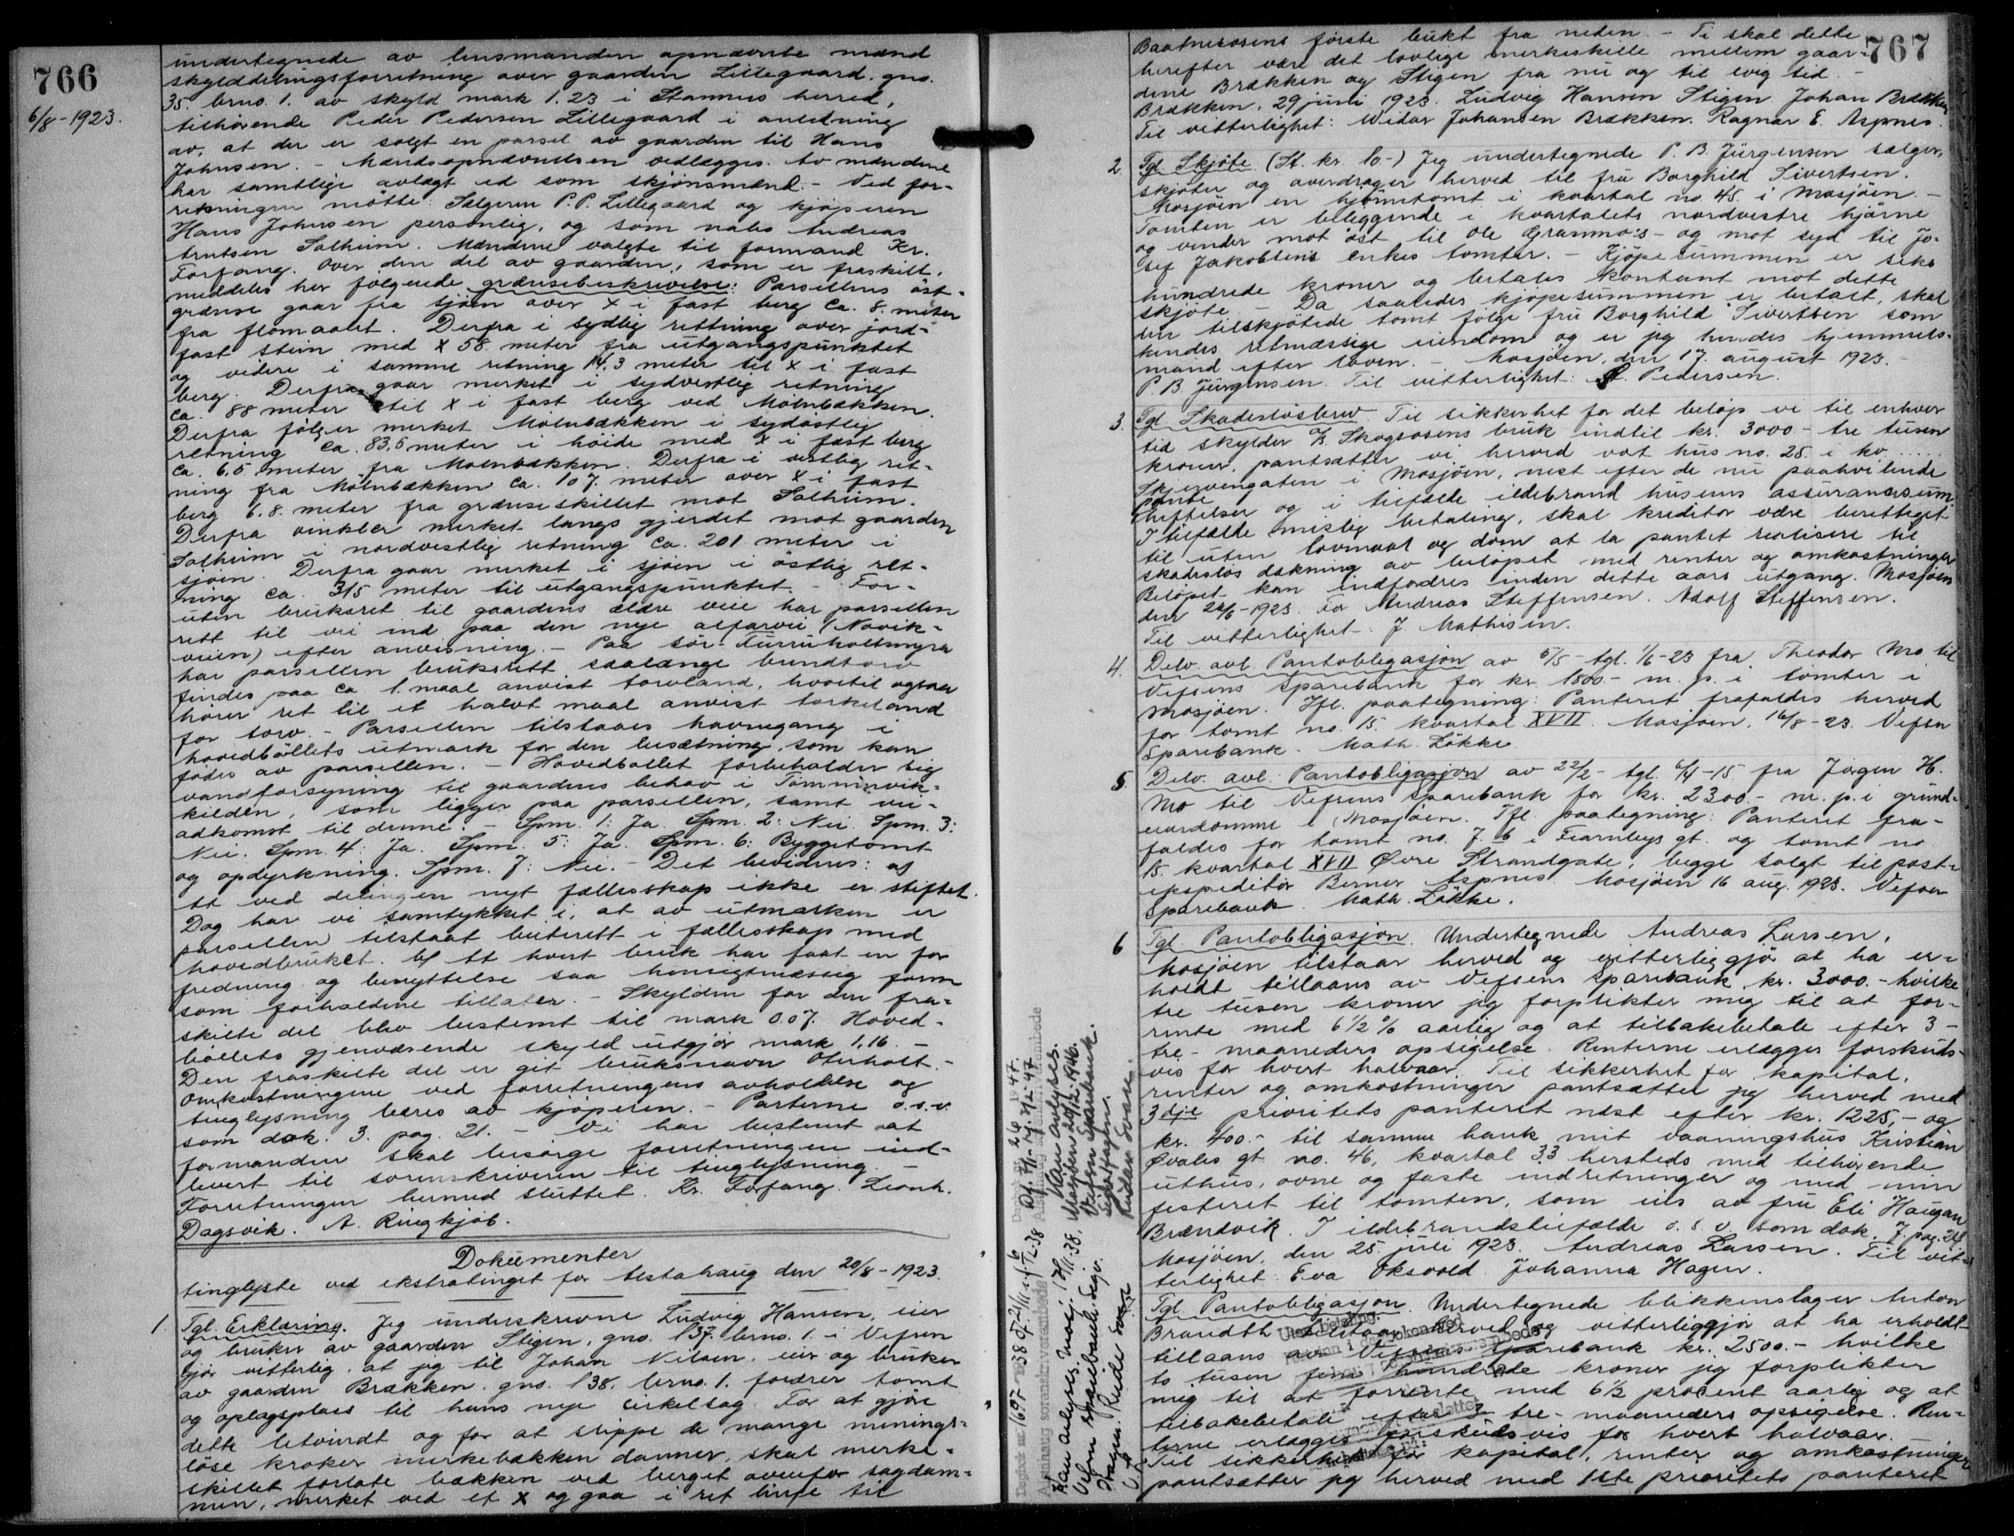 766
6/8-1923.
undertegnede av lensmanden opnævnte mænd
skylddelingsforretning over gaarden Lillegaard, gno.
35, brno. 1. av skyld mark 1.23 i Stamnes herred,
tilhörende Peder Pedersen Lillegaard i anledning
av, at der er solgt en parsel av gaarden til Hans
Johnsen. - Mændsopnævnelsen vedlægges. Av mændene
har samtlige avlagt ed som skjönsmænd. - Ved for-
retningen mötte: Sælgeren P.P. Lillegaard og kjöperen
Hans Johnsen personlig, og som nabo Andreas
Arntsen Solheim. Mændene valgte til formand Kr.
Forfang. Over den del av gaarden, som er fraskilt,
meddeles her fölgende grænsebeskrivelse: Parsellens öst-
grænse gaar fra sjöen over x i fast berg ca. 8. meter
fra flomaalet. Derfra i sydlig retning over jord-
fast stein med x 58 meter fra utgangspunktet
og videre i samme retning 14,3 meter til x i fast
berg. Derfra gaar merket i sydvestlig retning
ca. 88 meter til x i fast berg ved Mölnbækken.
Derfra fölger merket Mölnbækken i sydöstlig
retning ca. 83,5 meter i höide med x i fast berg
ca. 6.5 meter fra Mölnbækken. Derfra i vestlig ret-
ning fra Mölnbækken ca. 107 meter over x i fast
berg 6.8. meter fra grænseskillet mot Solheim.
Derfra vinkler merket langs gjerdet mot gaarden
Solheim i nordvestlig retning ca. 201 meter i
sjöen. Derfra gaar merket i sjöen i östlig ret-
ning ca. 315 meter til utgangspunktet. - For-
uten bruksret til gaardens ældre veie har parsellen
rett til vei ind paa den nye alfarvei (Navik-
veien) efter anvisning. - Paa sör-Furruholtmyra
har parsellen bruksrett saalænge brendtorv
findes paa ca 1. maal anvist torvland, hvortil ogsaa
hörer ret til et halvt maal anvist torkeland
for torv. - Parsellen tilstaaes havnegang i
hovedböllets utmark for den besætning, som kan
födes av parsellen. - Hovedböllet forbeholder sig
vandforsyning til gaardens behov i Tömmervik-
kilden, som ligger paa parsellen, samt vei-
adkomst til denne. - Spm. 1: Ja. Spm. 2: Nei. Spm. 3:
Nei. Spm. 4: Ja. Spm. 5: Ja. Spm. 6: Byggetomt
og opdyrkning. Spm. 7: Nei. - Det bevidnes: a)
At ved delingen nyt fællesskap ikke er stiftet.
Dog har vi samtykket i, at av utmarken er
parsellen tilstaat beiterett i fællesskap med
hovedbruket. b) At hvert bruk har faat en for
fredning og benyttelse saa hensigtmæssig form
som forholdene tillater. - Skylden for den fra-
skilte del blev bestemt til mark 0.07. Hoved-
böllets gjenværende skyld utgjör mark 1,16. -
Den fraskilte del er git bruksnavn Oterholt. -
Omkostningene ved forretningens avholdelse og
tinglysning bæres av kjöperen. - Parterne o.s.v.
som dok. 3. pag. 21. - Vi har bestemt at
formanden skal besörge forretningen ind-
levert til sorenskriveren til tinglysning. -
Forretningen hermed sluttet. Kr. Forfang. Leonh.
Dagsvik. A. Ringkjöb.
Dokumenter
tinglyste ved ekstratinget for Alstahaug den 20/8-1923.
1. Tgl. Erklæring. Jeg underskrevne Ludvig Hansen, eier
og bruker av gaarden Stigen, gno. 137. brno. 1. i Vefsen
gjör vitterlig, at jeg til Johan Nilsen, eier og bruker
av gaarden Brækken, gno. 138, brno. 1. forærer tomt
og oplagsplass til hans nye cirkelsag. For at gjöre
dette letvindt og for at slippe de mange menings-
löse kroker merkebækken danner, skal merke-
skillet forlate bækken ved berget ovenfor sagdam-
men, merket ved et x og gaa i ret linje til
767
Baatnesosens förste bukt fra neden. - Ti skal dette
herefter være det lovlige merkeskille mellem gaar-
dene Brækken og Stigen fra nu og til evig tid. -
Brækken, 29 juni 1923. Ludvig Hansen Stigen Johan Brækken
Til vitterlighet: Widar Johansen Brækken. Ragnar E. Aspnes.
2. Tgl. Skjöte (St. kr. 10-) Jeg undertegnede P. B. Jürgensen sælger,
skjöter og overdrager herved til fru Borghild Sivertsen.
Mosjöen en hjörnetomt i kvartal no. 45. i Mosjöen. -
Tomten er beliggende i kvartalets nordvestre hjörne
og vender mot öst til Ole Granmo's - og mot syd til Jo-
sef Jakobsens enkes tomter. - Kjöpesummen er seks
hundrede kroner og betales kontant mot dette
skjöte. - Da saaledes kjöpesummen er betalt, skal
den tilskjötede tomt fölge fru Borghild Sivertsen som
hendes retmæssige eiendom og er jeg hendes hjemmels-
mand efter loven. - Mosjöen, den 17. august 1923. -
P. B. Jürgensen. Til vitterlighet: A. Pedersen.
3. Tgl. Skadeslösbrev Til sikkerhet for det belöp vi til enhver
tid skylder A/S Skogrosens bruk indtil kr. 3000 - tre tusen
kroner, pantsætter vi herved vort hus no. 25. i kv. ....
Skjervengaten i Mosjöen, nest efter de nu paahvilende
pante
heftelser og i tilfælde ildebrand husenes assuransesum
I tilfælde mislig betaling, skal kreditor være berettiget
til uten lovmaal og dom at la pantet realisere til
skadeslös dækning av belöpet med renter og omkostninger
Belöpet kan indfordres inden dette aars utgang. Mosjöen
den 22/6-1923. for Andreas Steffensen. Adolf Steffensen.
Til vitterlighet. J. Mathisen.
4. Delv. avl. Pantobligasjon av 5/5- tgl. 1/6-23 fra Theodor Mo til
Vefsens Sparebank for kr. 1800.- m. p. i tomter i
Mosjöen. Ifl. paategning: Panteret frafaldes herved
for tomt no. 15. kvartal XVII. Mosjöen, 16/8-23. Vefsen
Sparebank. Math. Lökke
5 Delv. avl. Pantobligasjon av 22/2- tgl. 6/4-15 fra Jörgen H.
Mo til Vefsens Sparebank for kr. 2300.- m. p. i grund-
eiendomme i Mosjöen. Ifl paategning: Panteret fra-
faldes for tomt no. 7 b i Fearnleys gt. og tomt no
15. kvartal XVII Övre Strandgate, begge solgt til post-
ekspeditör Berner Aspnes. Mosjöen 16 aug. 1923. Vefsen
Sparebank. Math. Lökke.
6 Tgl. Pantobligasjon. Undertegnede Andreas Larsen,
Mosjöen tilstaar herved og vitterliggjör at ha er-
holdt tillaans av Vefsens Sparebank kr. 3000.- hvilke
tre tusen kroner jeg forplikter mig til at for-
rente med 6 1/2 % aarlig og at tilbakebetale efter 3 -
tre - maaneders opsigelse. Renterne erlægges forskuds-
vis for hvert halvaar. Til sikkerhet for kapital,
renter og omkostninger pantsætter jeg herved med
3dje prioritets panteret næst efter kr. 1225,- og
kr. 400.- til samme bank mit vaaningshus Kristian
Qvales gt. no. 46, kvartal 33 hersteds med tilhörende
uthus, ovne og faste indretninger og med min
festeret til tomten, som eies av fru Eli Haugan
Brændvik. I ildebrandstilfælde o. s. v. som dok. 7 pag. 218
Mosjöen, den 25 juli 1923. Andreas Larsen. Til vit-
terlighet: Eva Oksvold. Johanna Hagen.
Tgl. Pantobligasjon. Undertegnede blikkenslager Anton
Brandth tilstaar herved og vitterliggjör at ha erholdt
tillaans av Vefsens Sparebank kr. 2500.- hvilke
to tusen fem hundrede kroner jeg forplikter
mig til at forrente med 6 1/2 procent aarlig og at
tilbakebetale efter 3 tre- maaneders opsigelse. Ren-
terne erlægges forskudsvis for hvert halvaar.
Til sikkerhet for kapital, renter og omkostninger
pantsætter jeg herved med 1ste prioritets panteret
Kan avlyses. Mosj. 17/11-38.
Vefsn sparebank. Segv.
Kan avlyses.
Mosjöen 20/12 1946.
Vefsn Sparebank.